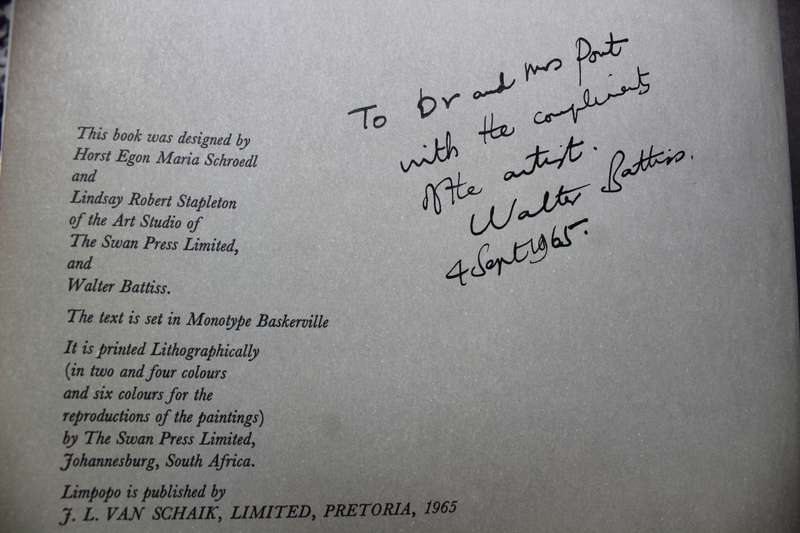 To Dr and Mrs Pont
with the compliments
of the artist.
Walter Battiss.
4 Sept 1965.
This book was designed by
Horst Egon Maria Schroedl
and
Lindsay Robert Stapleton
of the Art Studio of
The Swan Press Limited,
and
Walter Battiss.
The text is set in Monotype Baskerville
It is printed Lithographically
(in two and four colours
and six colours for the
reproductions of the paintings)
by The Swan Press Limited,
Johannesburg, South Africa.
Limpopo is published by
J. L. VAN SCHAIK, LIMITED, PRETORIA, 1965